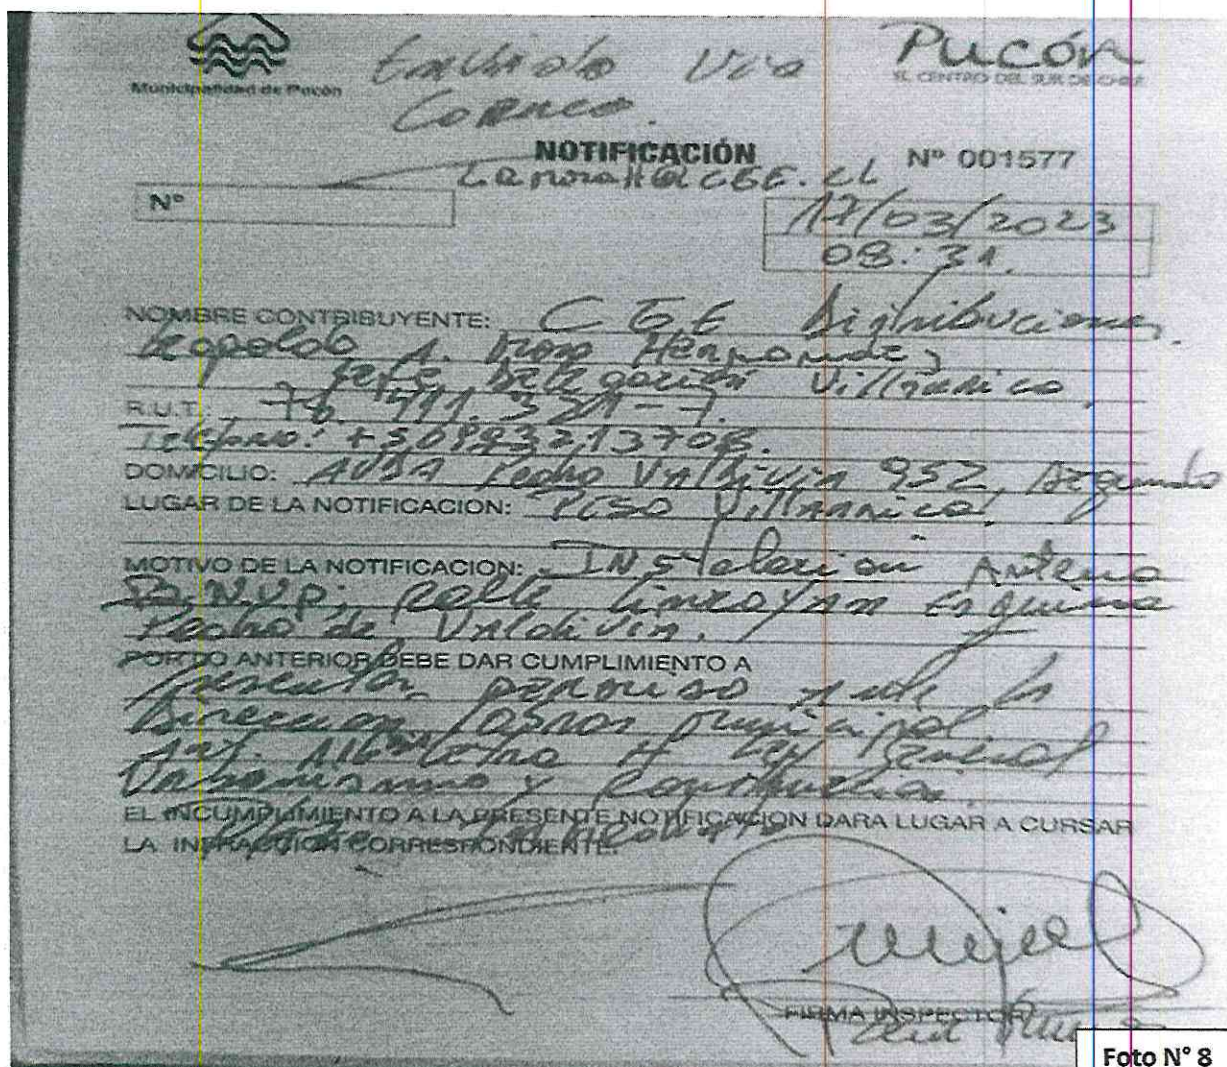 Municipalidad de Pucón
Pucón
EL CENTRO DEL SUR DE CHILE
Enviado Via
Correo.
NOTIFICACIÓN
Nº 001577
Nº
17/03/2023
08:31.
NOMBRE CONTRIBUYENTE: CGE Distribuciones.
Leopoldo A. Mora Hernandez
Jefe Villarrica
R.U.T.:
Telefono:
DOMICILIO: Pedro Valdivia 952, segundo
LUGAR DE LA NOTIFICACION: Piso Villarrica
MOTIVO DE LA NOTIFICACION: Instalacion Antena
B.N.U.P; calle Lincoyan Esquina
Pedro de Valdivia.
POR LO ANTERIOR DEBE DAR CUMPLIMIENTO A
Presentar permiso ante la
Direccion obras municipal.
Art. 116 Letra H Ley General
Urbanismo y Construccion.
EL INCUMPLIMIENTO A LA PRESENTE NOTIFICACION DARA LUGAR A CURSAR
LA INFRACCION CORRESPONDIENTE.
FIRMA INSPECTOR
Foto N° 8